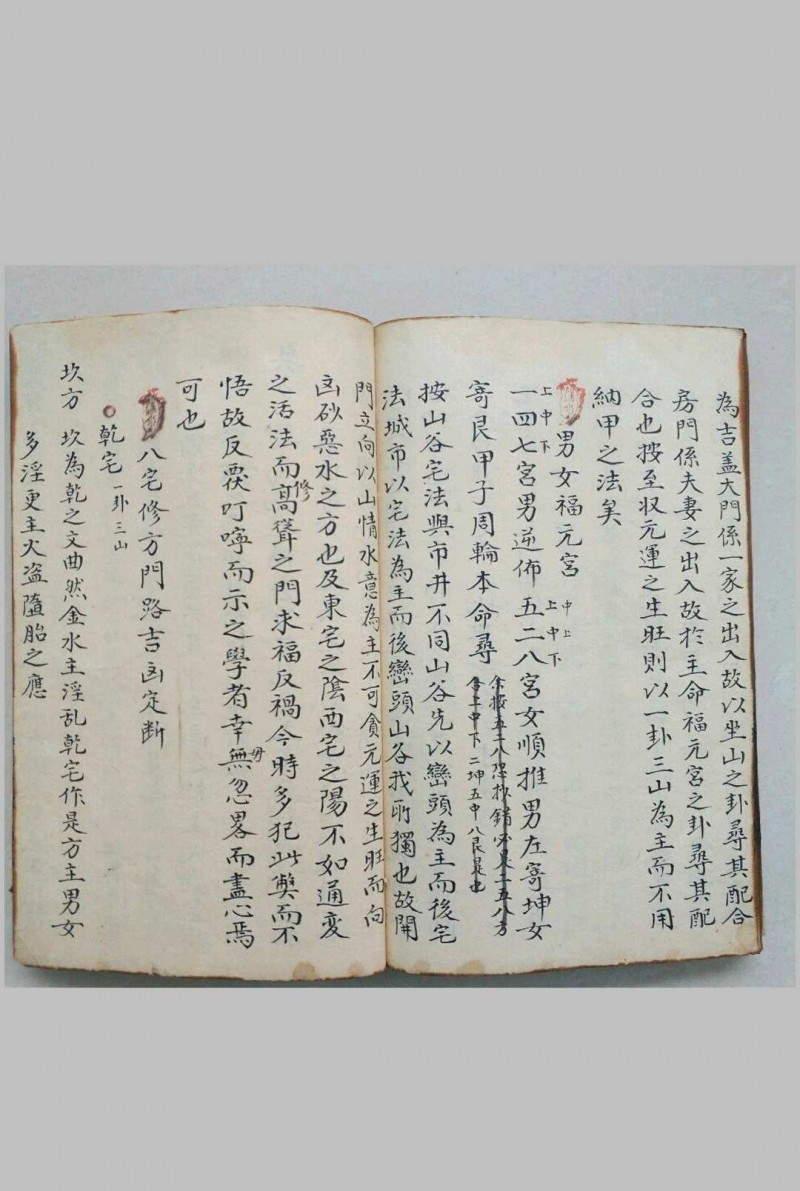 為吉蓋大門係一家之出入故以坐山之卦尋其配合
房門係夫妻之出入故於主命福元宮之卦尋其配
合也按至収元運之生旺則以一卦三山為主而不用
納甲之法矣
男女福元宮
上中下 中上
上中下
一四七宮男逆佈五二八宮女順推男左寄坤女
寄艮甲子周輪本命尋
余按五二八恐抄錯必是二五八方
合上中下二坤五中八艮是也
按山谷宅法與市井不同山谷先以巒頭為主而後宅
法城市以宅法為主而後巒頭山谷我所獨也故開
門立向以山情水意為主不可貪元運之生旺而向
凶砂惡水之方也及東宅之陰西宅之陽不如通变
之活法而高聳之門求福反禍今時多犯此獘而不
修
悟故反覆叮嚀而示之學者幸無忽畧而盡心焉
毋
可也
八宅修方門路吉凶定断
乾宅一卦三山
坎方 坎為乾之文曲然金水主淫乱乾宅作是方主男女
多淫更主火盗墮胎之應